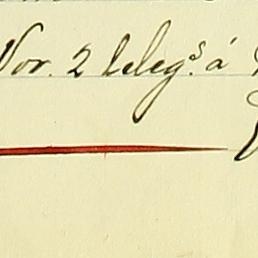 Nov. 2 telegs. á